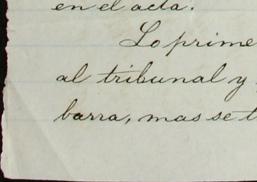 en el acta.
Lo prime
al tribunal y
barra, mas se t